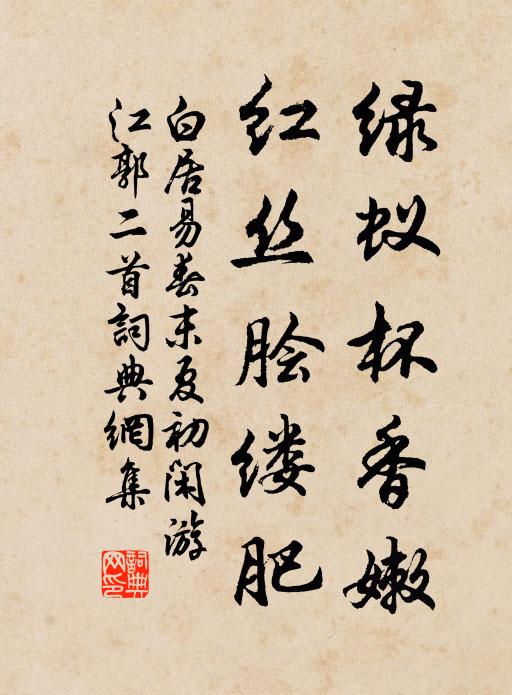 绿蚁杯香嫩
红丝脍缕肥
白居易春末夏初闲游
江郭二首詞典網集
詞典
网印